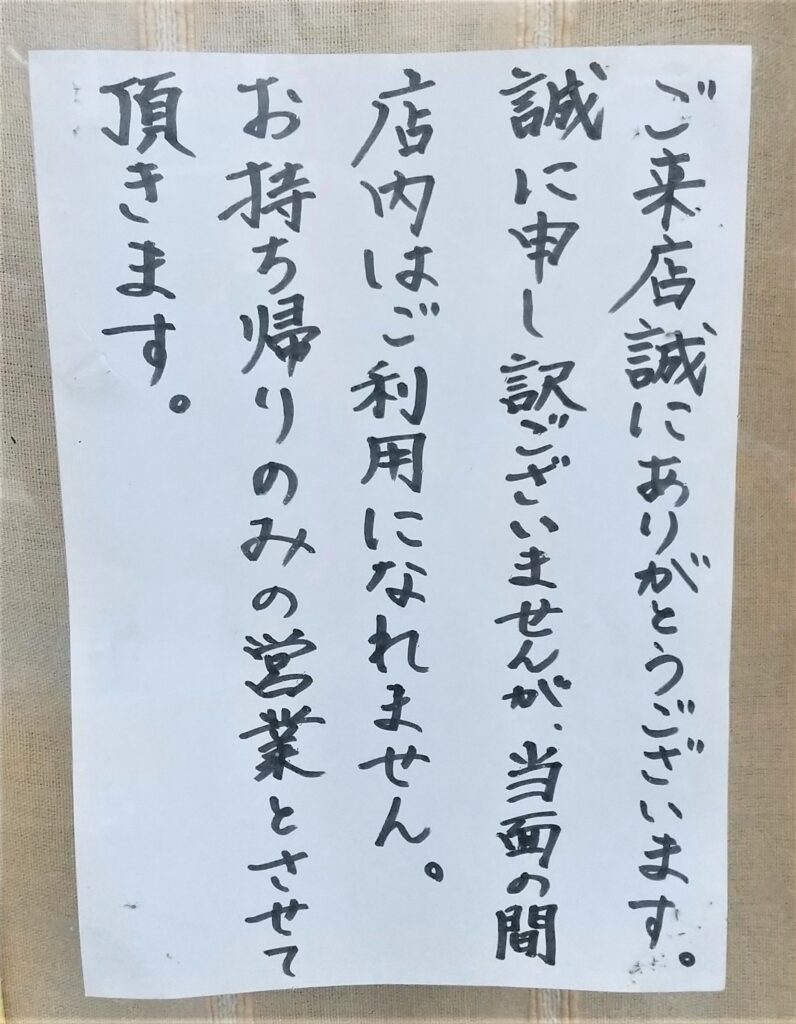 ご来店誠にありがとうございます。
誠に申し訳ございませんが、当面の間
店内はご利用になれません。
お持ち帰りのみの営業とさせて
頂きます。